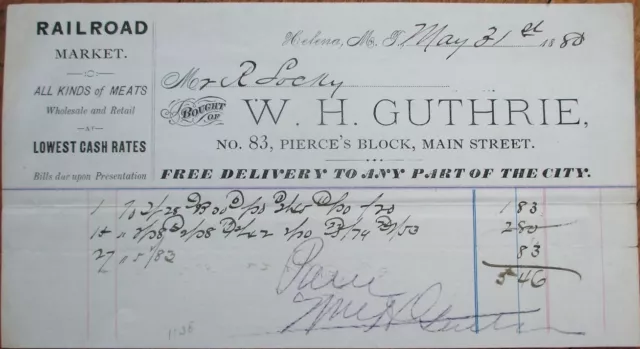 RAILROAD
MARKET.
ALL KINDS of MEATS
Wholesale and Retail
—AT—
LOWEST CASH RATES
Bills due upon Presentation
Helena, M. T. May 31st 1880
Mr R Locky
BOUGHT OF W. H. GUTHRIE,
NO. 83, PIERCE'S BLOCK, MAIN STREET.
FREE DELIVERY TO ANY PART OF THE CITY.
1 183
14 280
27 83
5 46
Paid
Wm H Guthrie